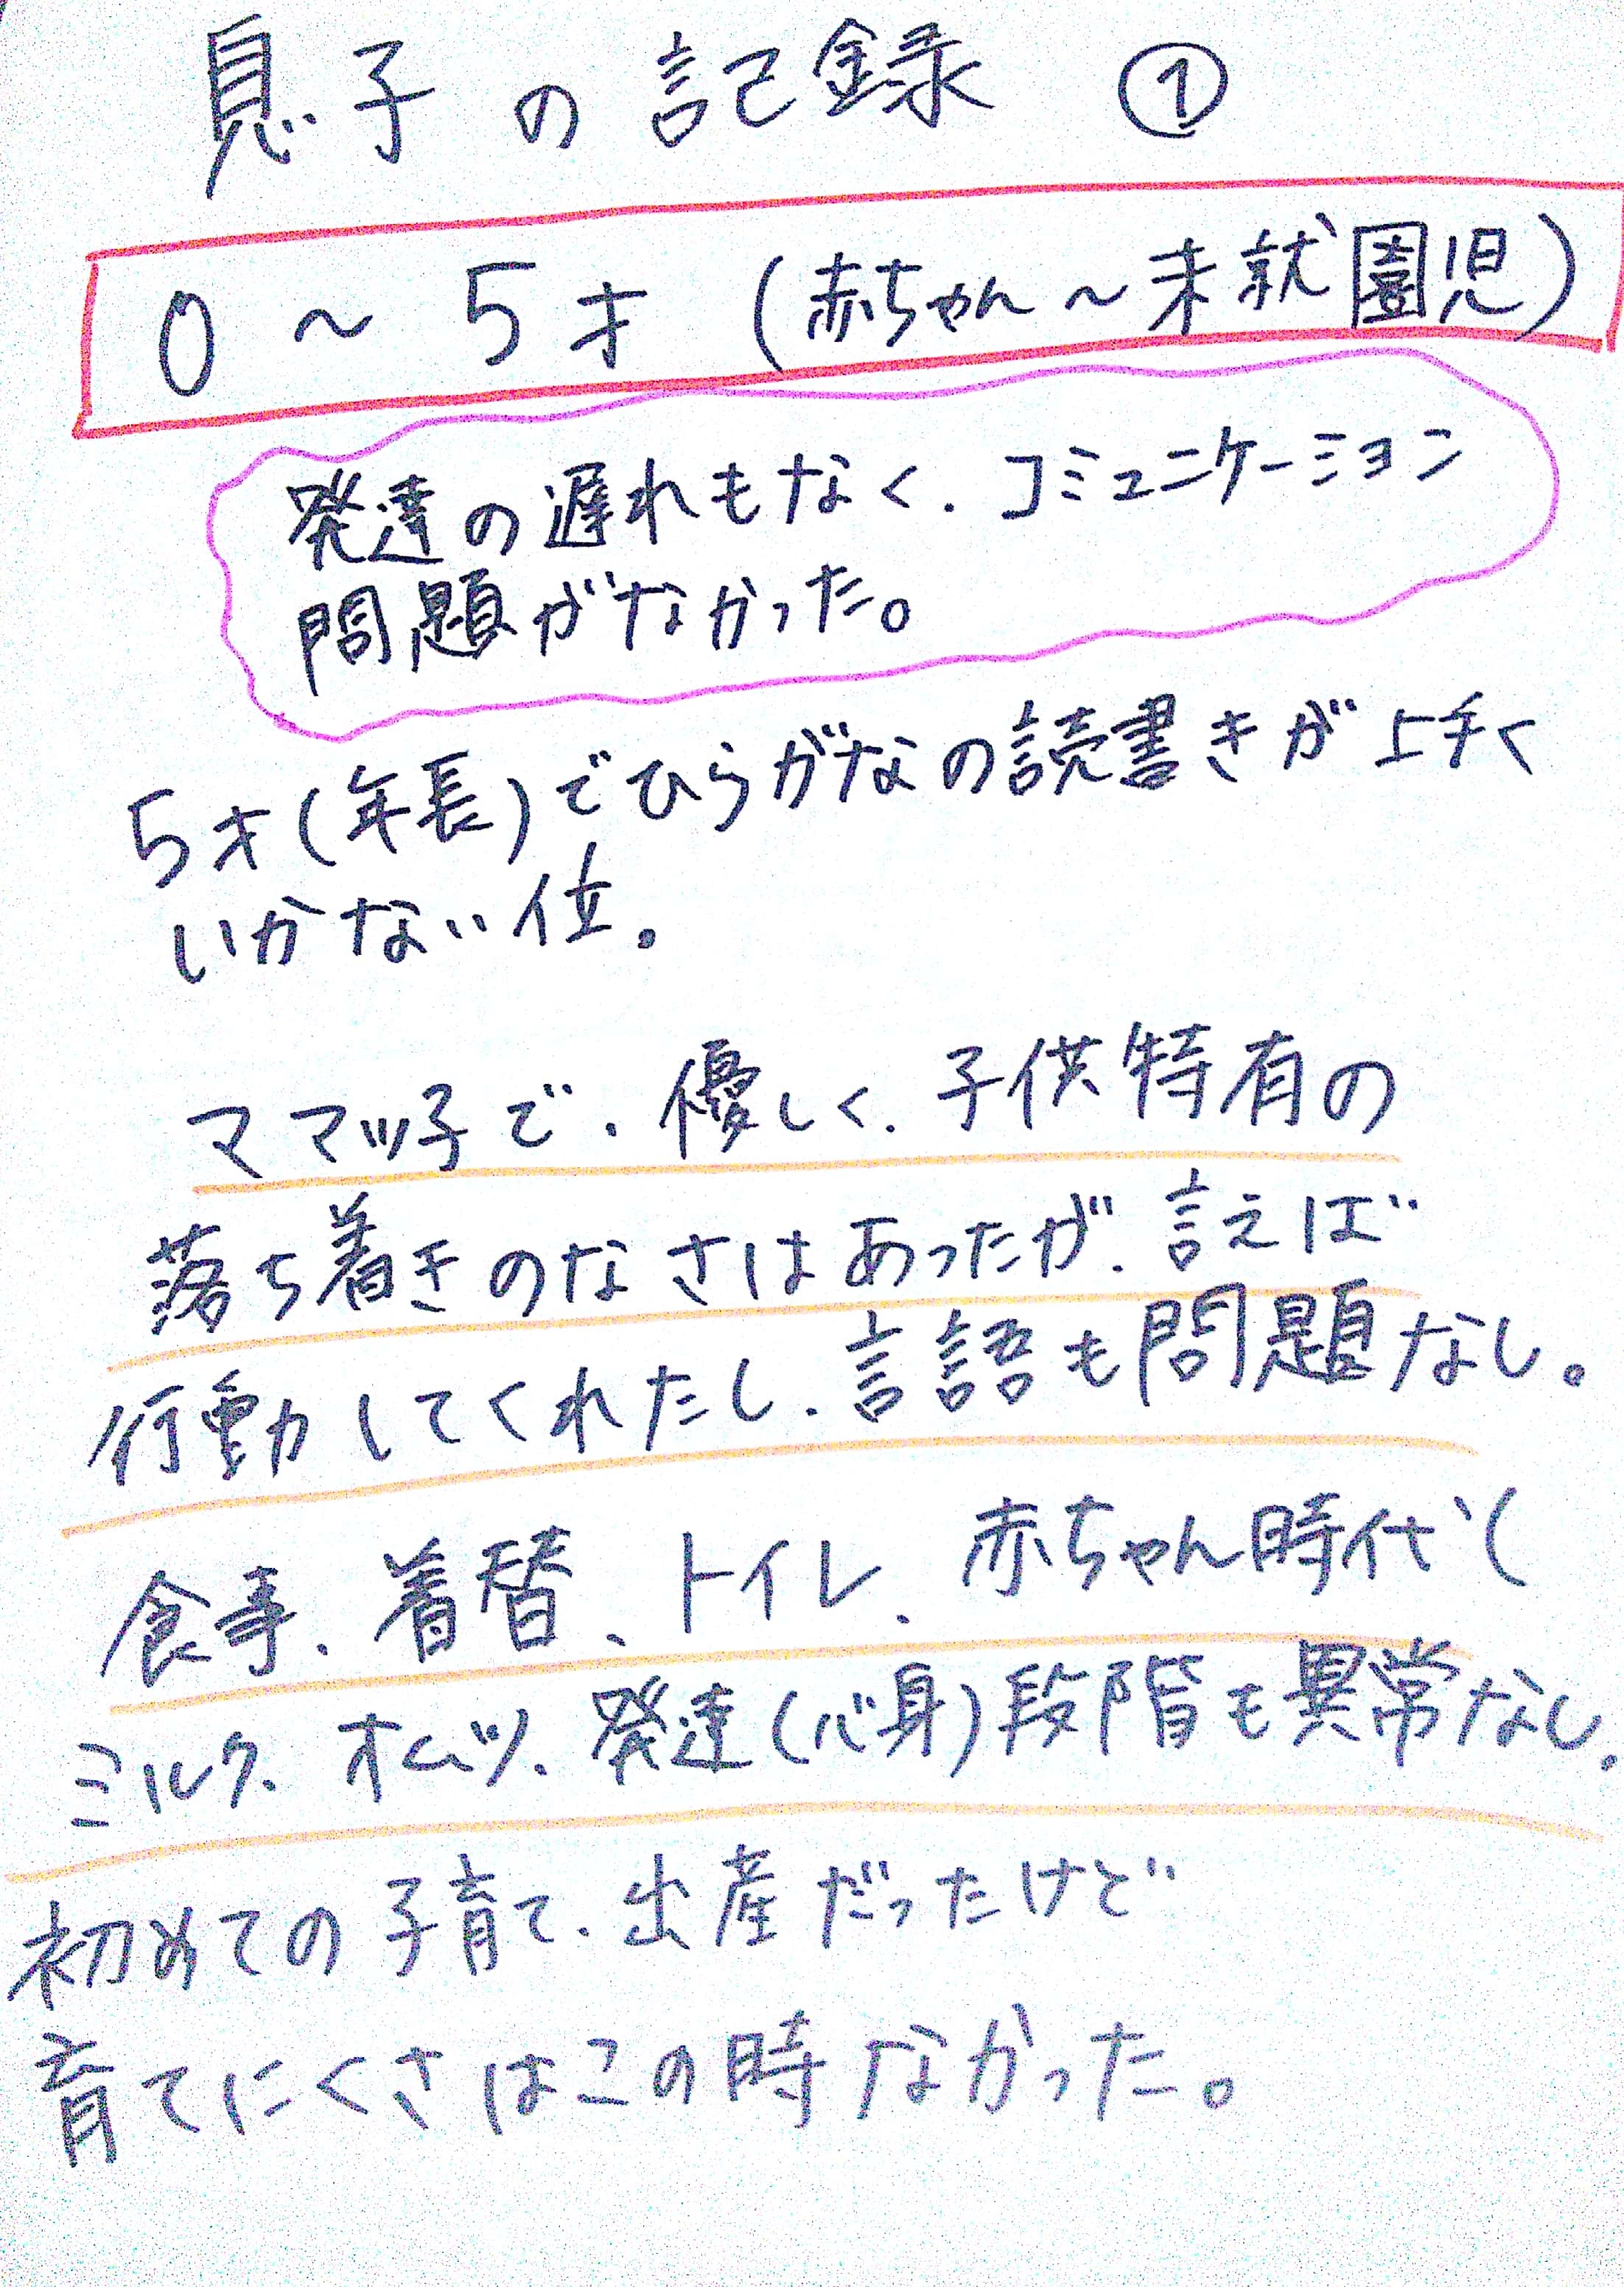 息子の記録 ①
0～5才(赤ちゃん～未就園児)
発達の遅れもなく、コミュニケーション
問題がなかった。
5才(年長)でひらがなの読書きが上手く
いかない位。
ママッ子で、優しく、子供特有の
落ち着きのなさはあったが、言えば
行動してくれたし、言語も問題なし。
食事、着替、トイレ、赤ちゃん時代(
ミルク、オムツ、発達(心身)段階も異常なし。
初めての子育て、出産だったけど
育てにくさはこの時なかった。